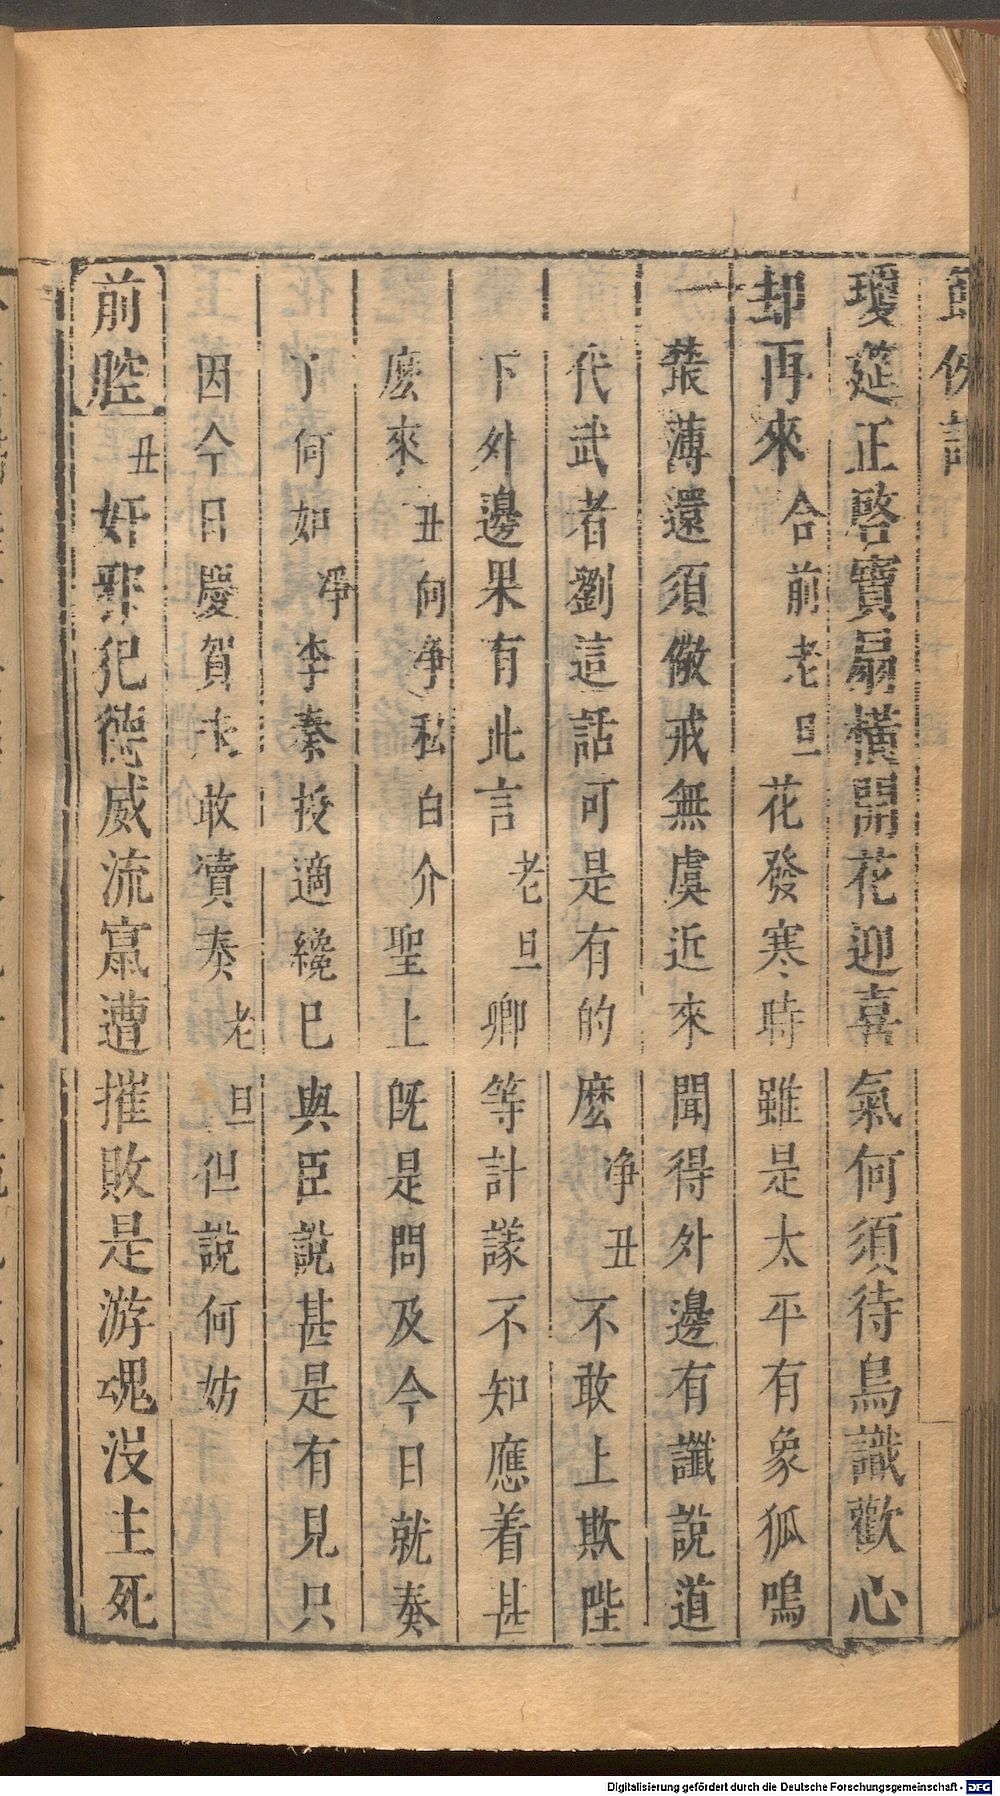 瓊筵正啓寶扇橫開花迎喜氣何須待鳥識歡心
却再來合前老旦花發寒時雖是太平有象狐鳴
一叢薄還須儆戒無虞近來聞得外邊有讖說道
代武者劉這話可是有的麽净丑不敢上欺陛
下外邊果有此言老旦卿等計議不知應着甚
麽來丑向净私白介聖上旣是問及今日就奏
了何如淨李秦授適纔巳與臣說甚是有見只
因今日慶賀未敢凟奏老旦但說何妨
前腔丑奸邪犯德威流寡遭摧敗是游魂沒主死
Digitalisierung gefördert durch die Deutsche Forschungsgemeinschaft - DFG